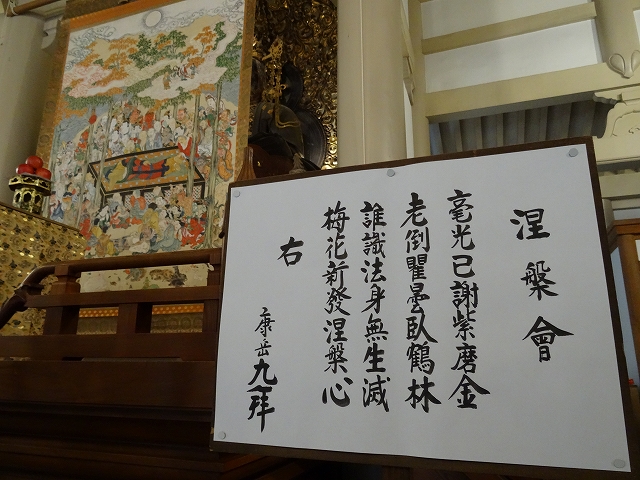 涅槃會
毫光已謝紫磨金
老倒瞿曇臥鶴林
誰識法身無生滅
梅花新發涅槃心
右
康岳九拜